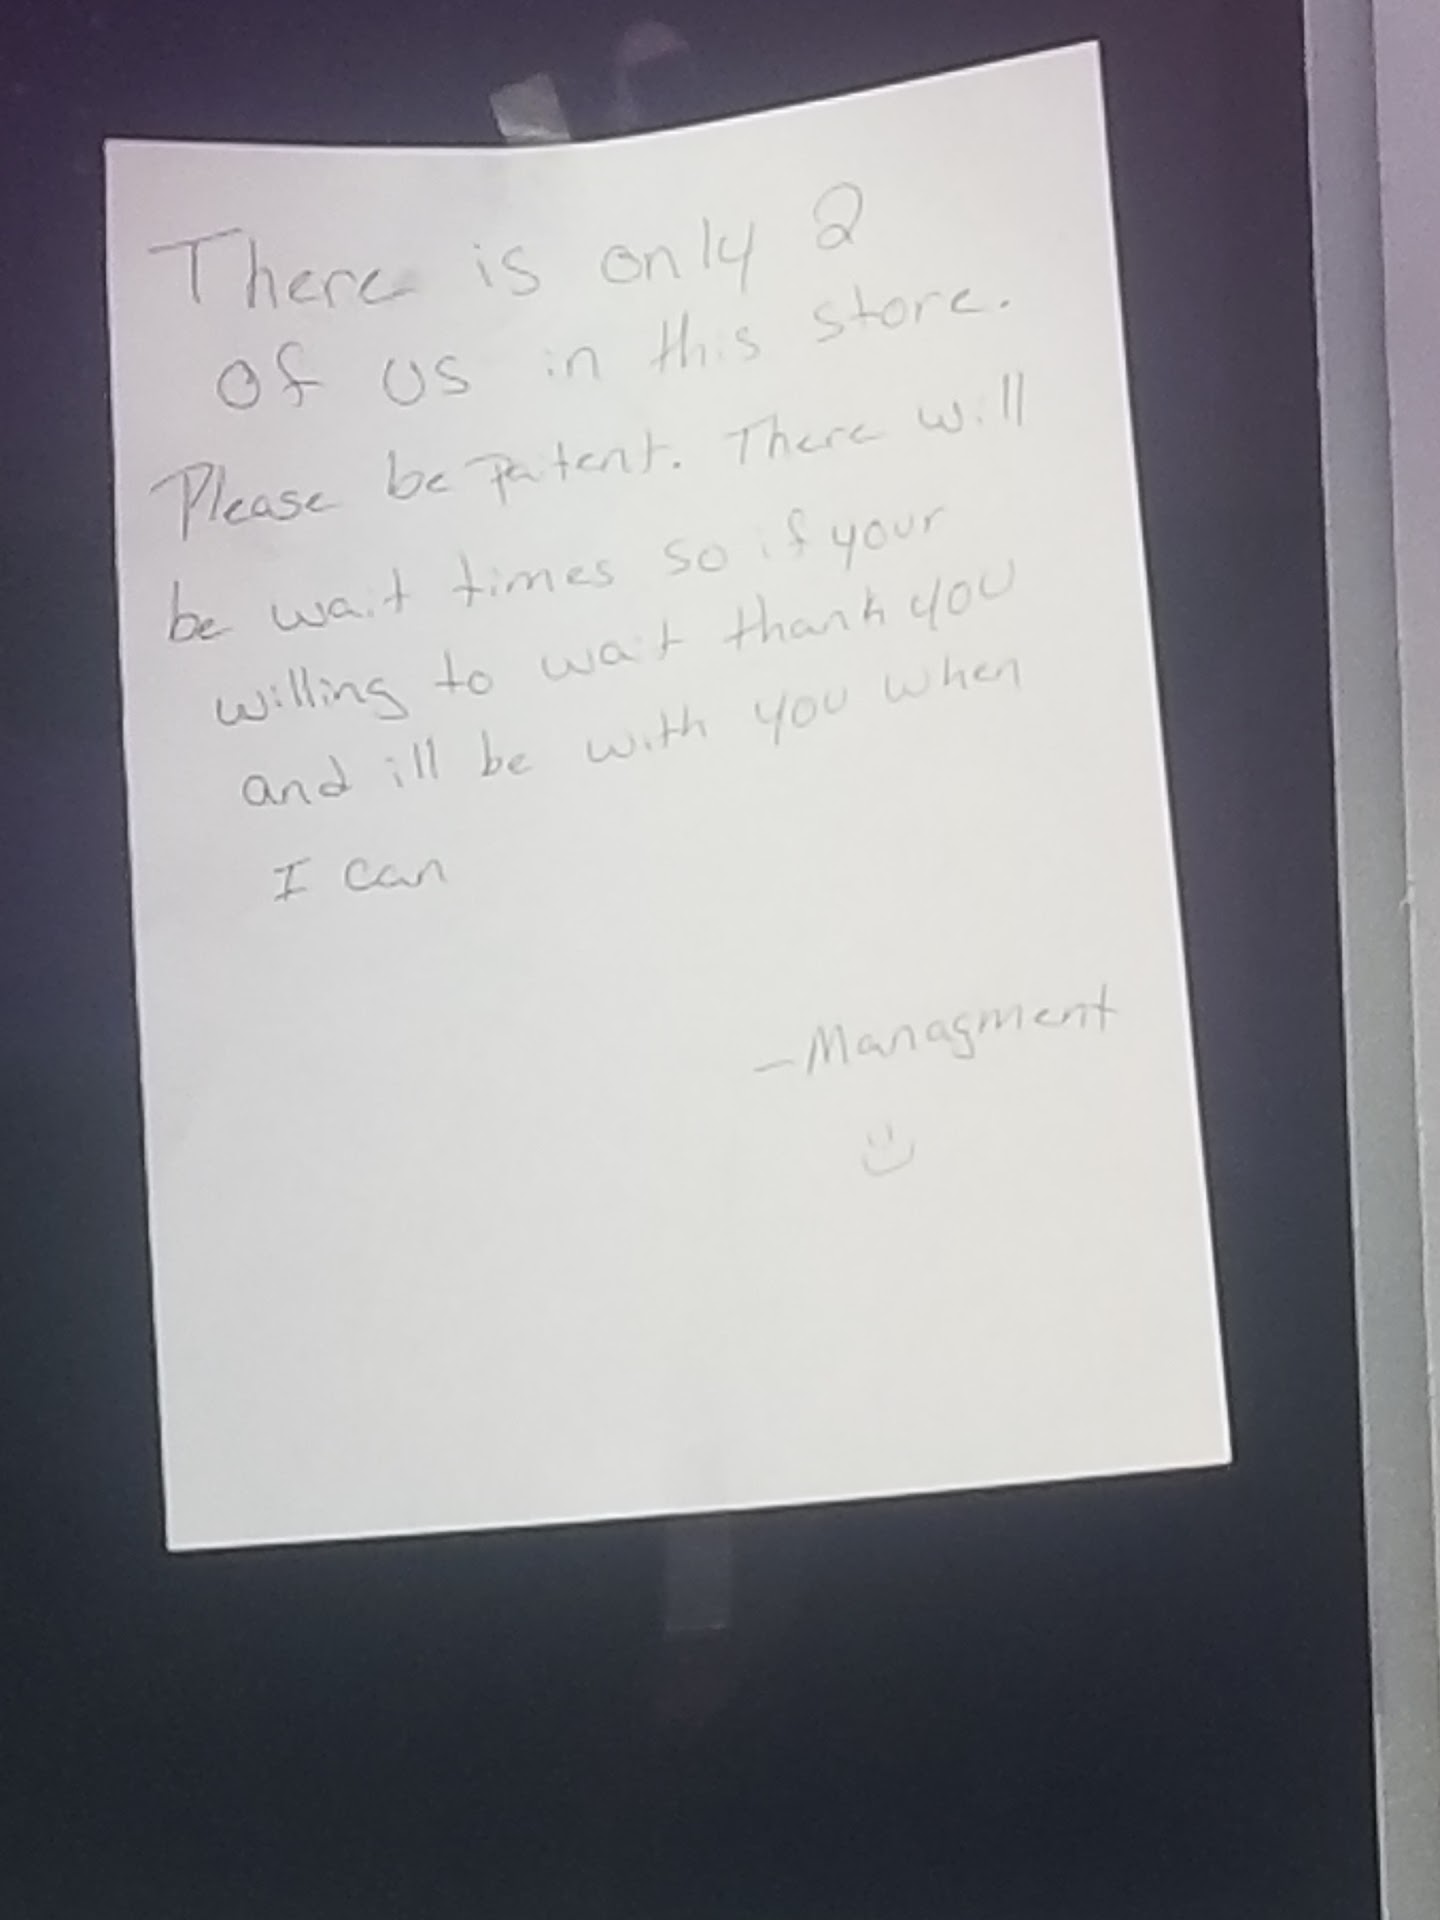 There is only 2
of us in this store.
Please be patent. There will
be wait times so if your
willing to wait thank you
and ill be with you when
I can
-Managment